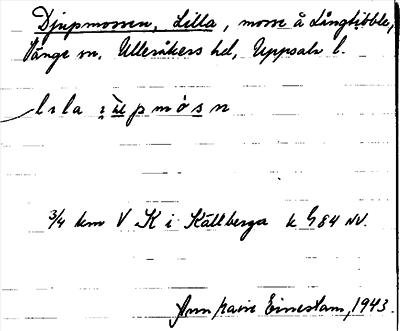 Djupmossen, Lilla, mosse å Långtibble,
Vänge sn, Ulleråkers hd, Uppsala l.
lıla
¾ km V K i Källberga k G84 NV.
Einestam, 1943.